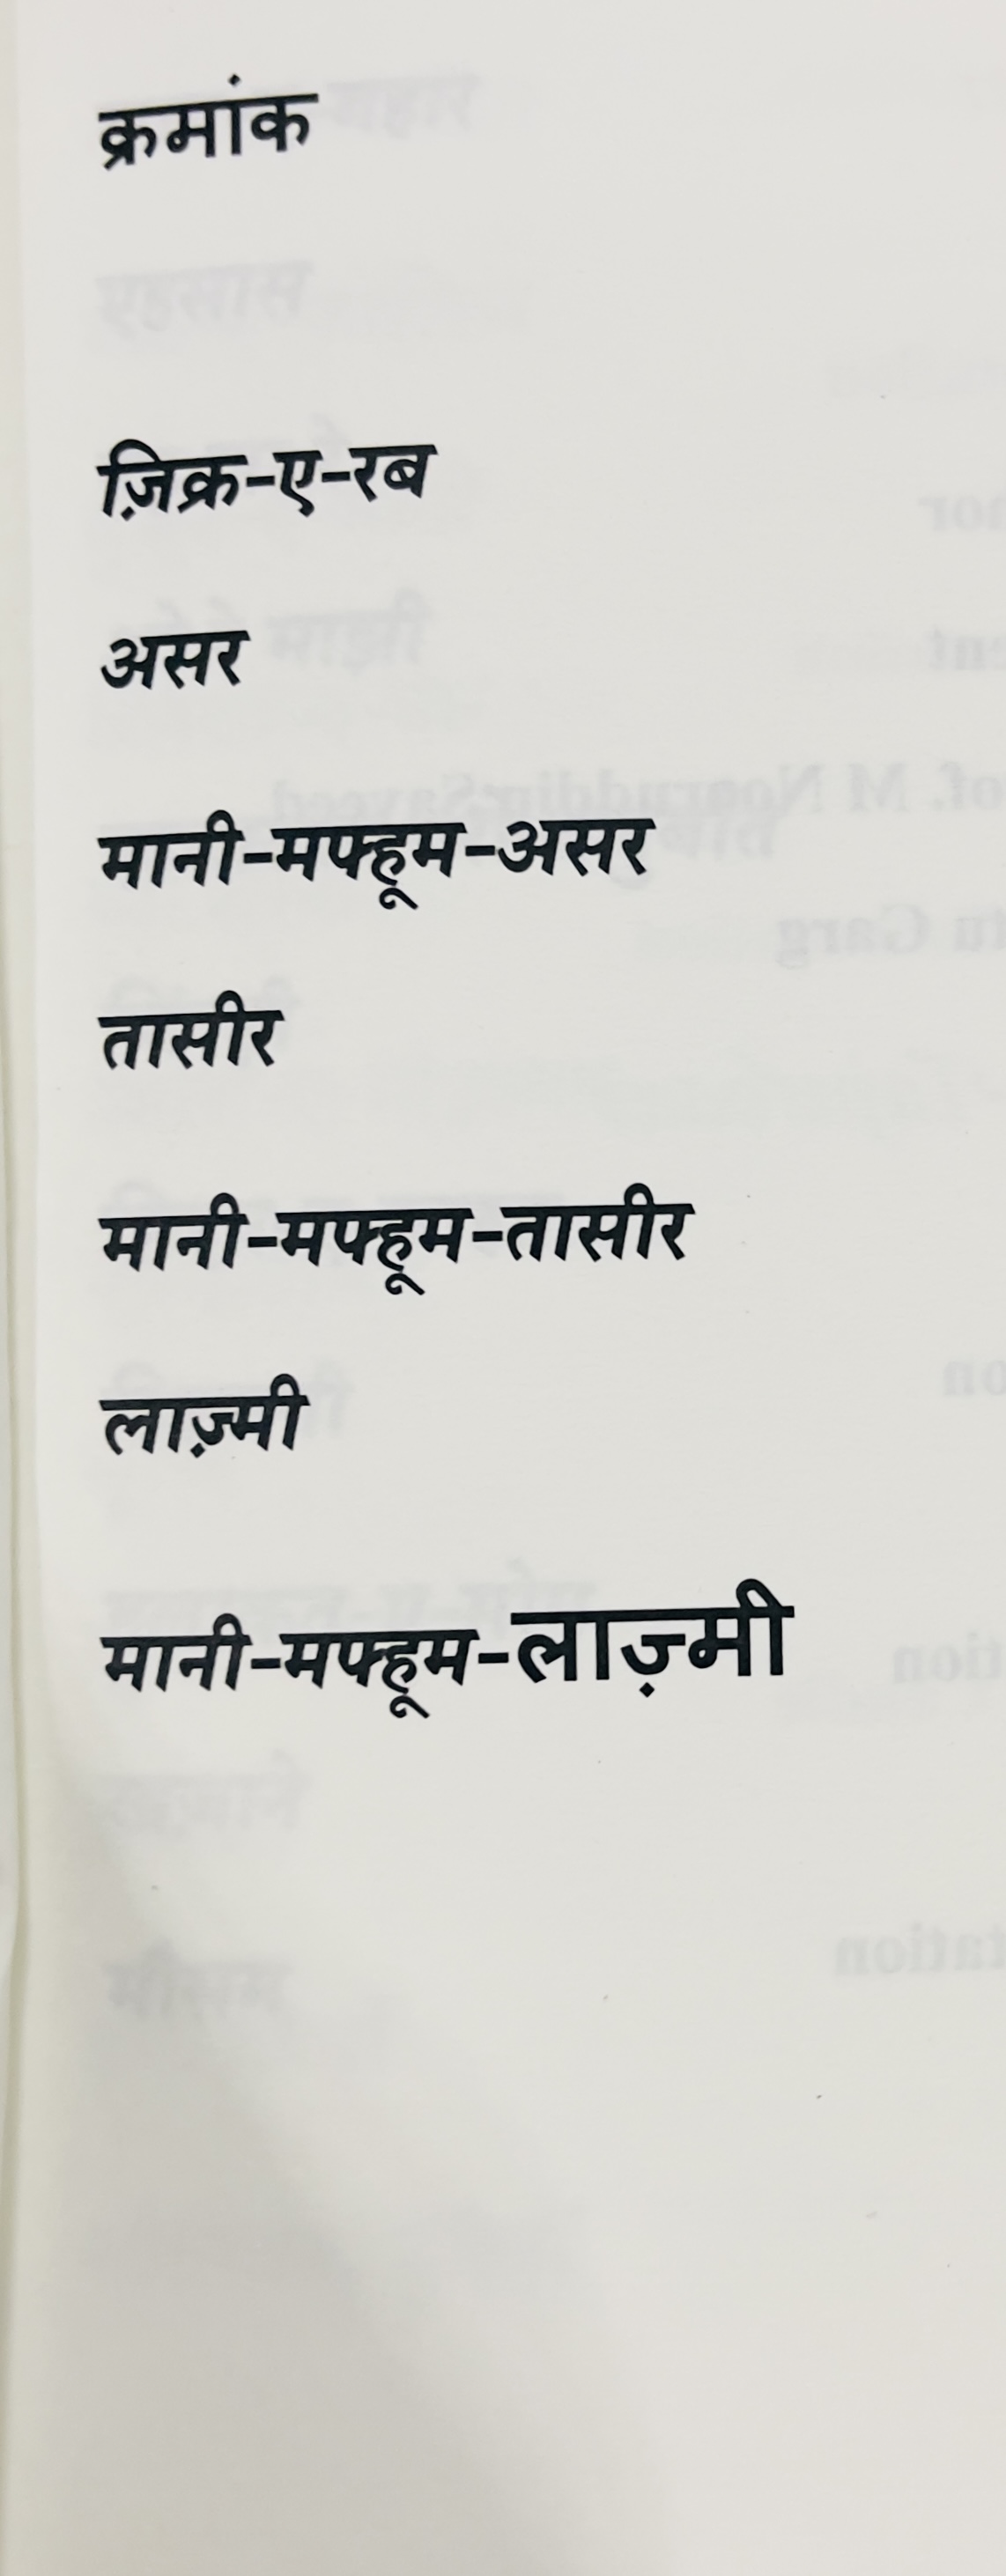 क्रमांक
ज़िक्र-ए-रब
असर
मानी-मफ्हूम-असर
तासीर
मानी-मफ्हूम-तासीर
लाज़्मी
मानी-मफ्हूम-लाज़्मी